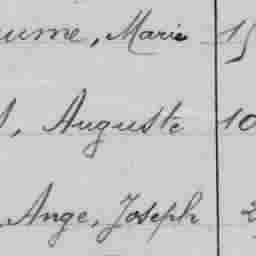 ume, Marie 15
, Auguste 10
Ange, Joseph 2